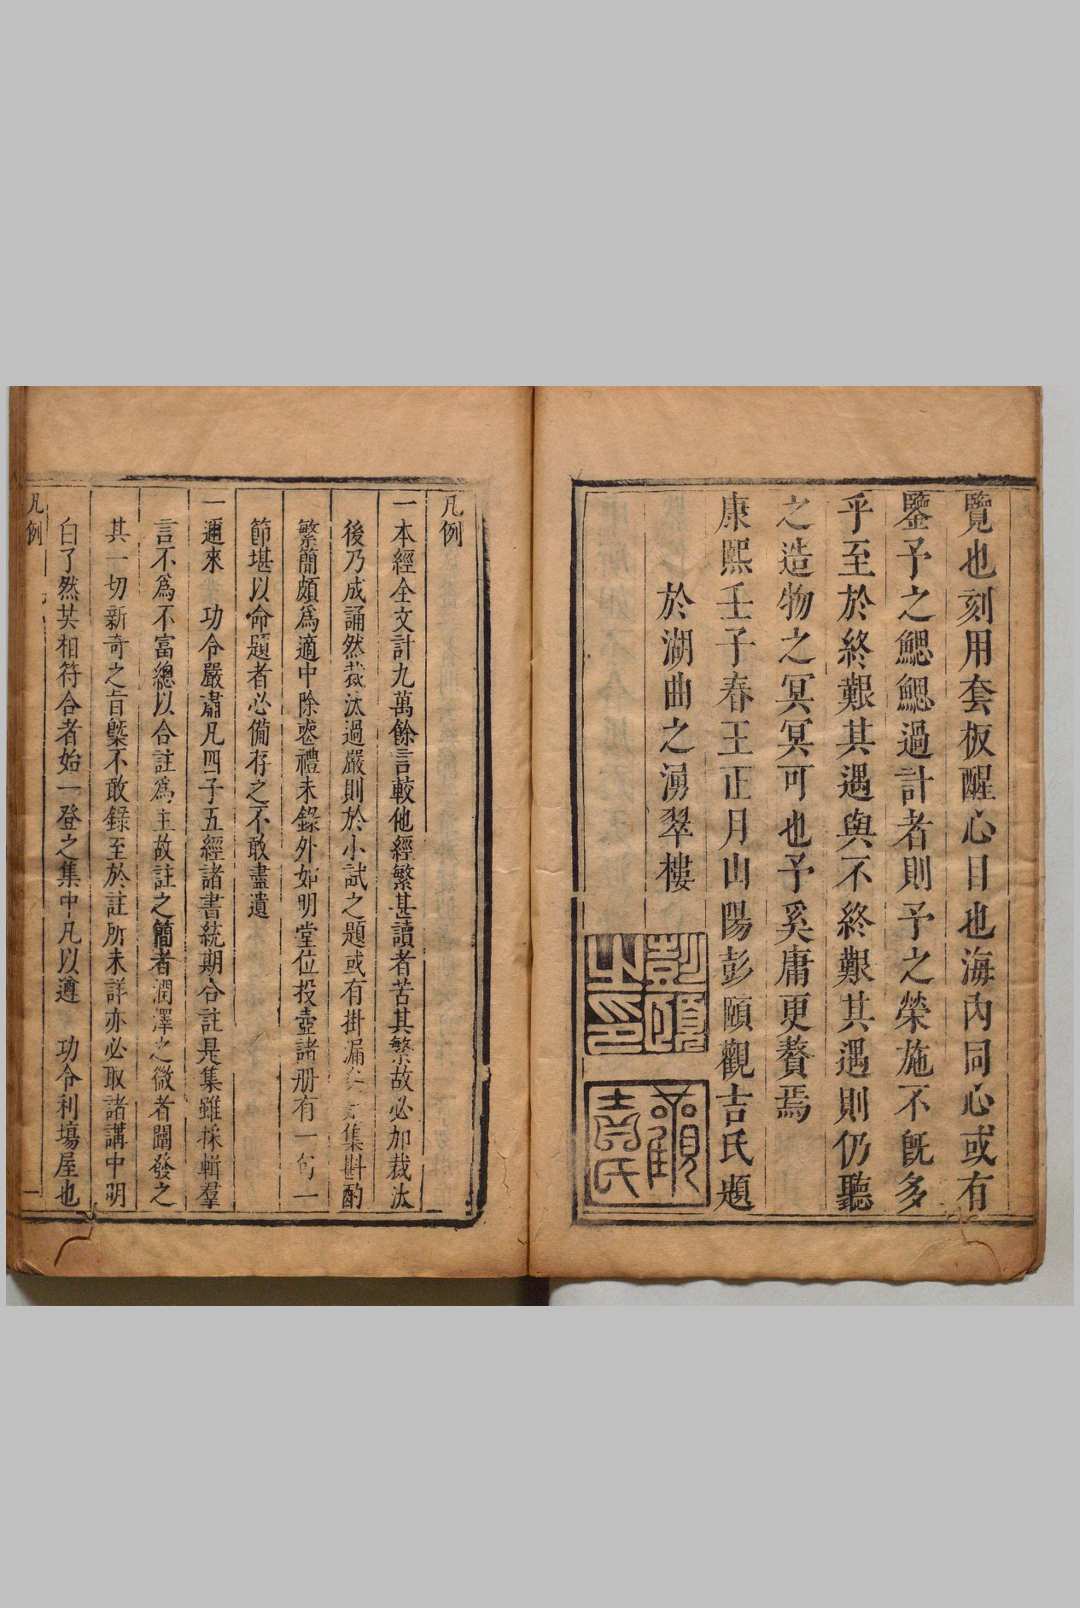 覽也刻用套板醒心目也海內同心或有
鑒予之鰓鰓過計者則予之榮施不既多
乎至於終艱其遇與不終艱其遇則仍聽
之造物之冥冥可也予奚庸更贅焉
康熙壬子春王正月山陽彭頤觀吉氏題
於湖曲之湧翠樓
彭頤之印
頤觀吉氏
凡例
一本經全文計九萬餘言較他經繁甚讀者苦其繁故必加裁汰
後乃成誦然裁汰過嚴則於小試之題或有掛漏集斟酌
繁簡頗爲適中除喪禮未錄外如明堂位投壺諸册有一句一
節堪以命題者必備存之不敢盡遺
一邇來功令嚴肅凡四子五經諸書統期合註是集雖採輯羣
言不爲不富總以合註爲主故註之簡者潤澤之微者闡發之
其一切新奇之旨槩不敢錄至於註所未詳亦必取諸講中明
白了然其相符合者始一登之集中凡以遵功令利塲屋也
凡例
一